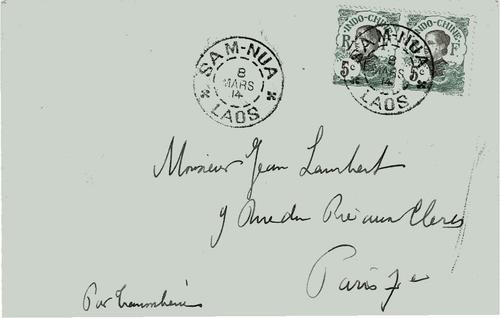 SAM-NUA
8
MARS
14
LAOS
INDO-CHINE INDO-CHINE
R F
5c 5c
SAM-NUA
8
MARS
14
LAOS
Monsieur Jean Lambert
9 Rue du Pré aux Clercs
Paris 7e
Par Transsibérien